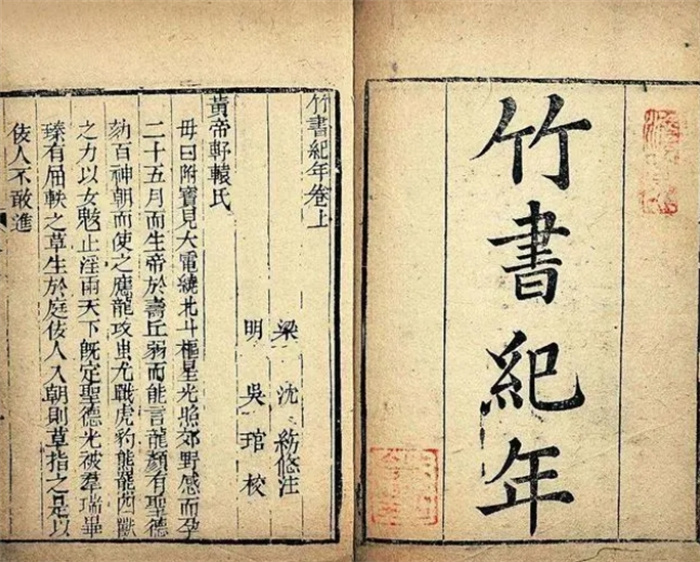 竹書紀年
竹書紀年卷上
梁 沈 約附注
明 吳 琯 校
黃帝軒轅氏
母曰附寶見大電繞北斗樞星光照郊野感而孕
二十五月而生帝於壽丘弱而能言龍顏有聖德
劾百神朝而使之應龍攻蚩尤戰虎豹熊羆四獸
之力以女魃止淫雨天下既定聖德光被羣瑞畢
臻有屈軼之草生於庭佞人入朝則草指之是以
佞人不敢進